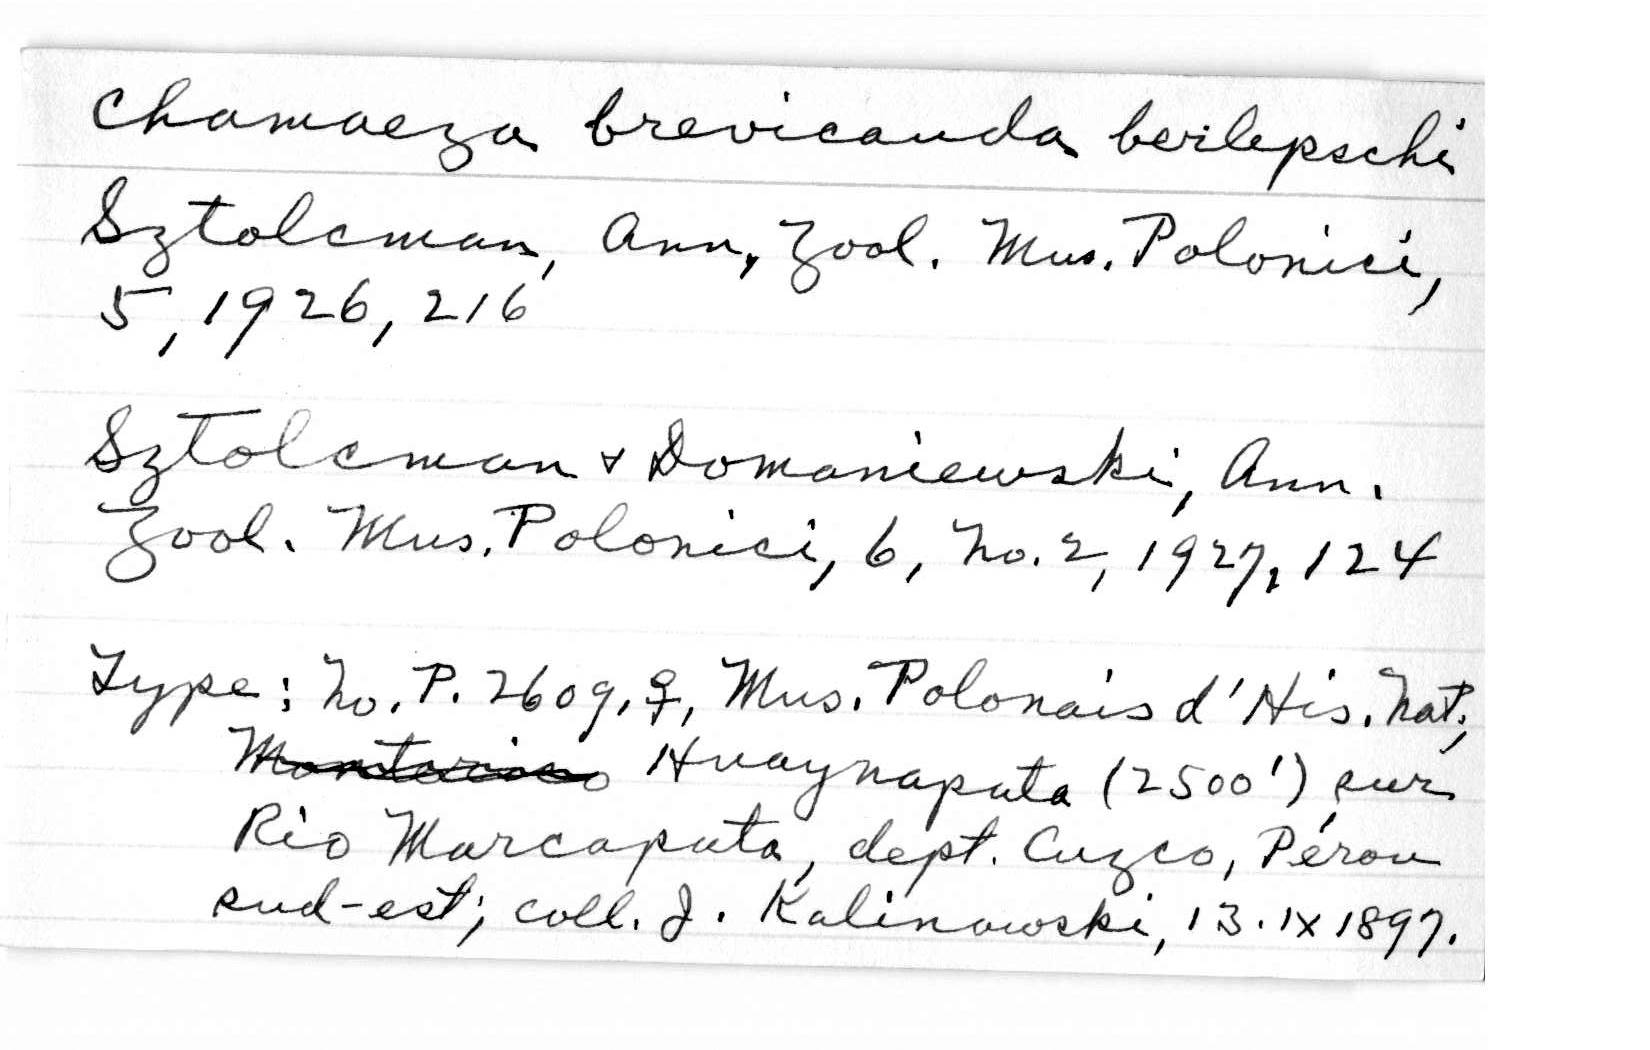 Chamaeza brevicauda berlepschi
Sztolcman, Ann, Zool. Mus. Polonici,
5, 1926, 216
Sztolcman & Domaniewski, Ann.
Zool. Mus. Polonici, 6, no. 2, 1927, 124
Type: no. P. 2609, ♀, Mus. Polonais d'His. Nat;
Huaynapata (2500') sur
Rio Marcapata, dept. Cuzco, Pérou
sud-est; coll. J. Kalinowski, 13.IX 1897.